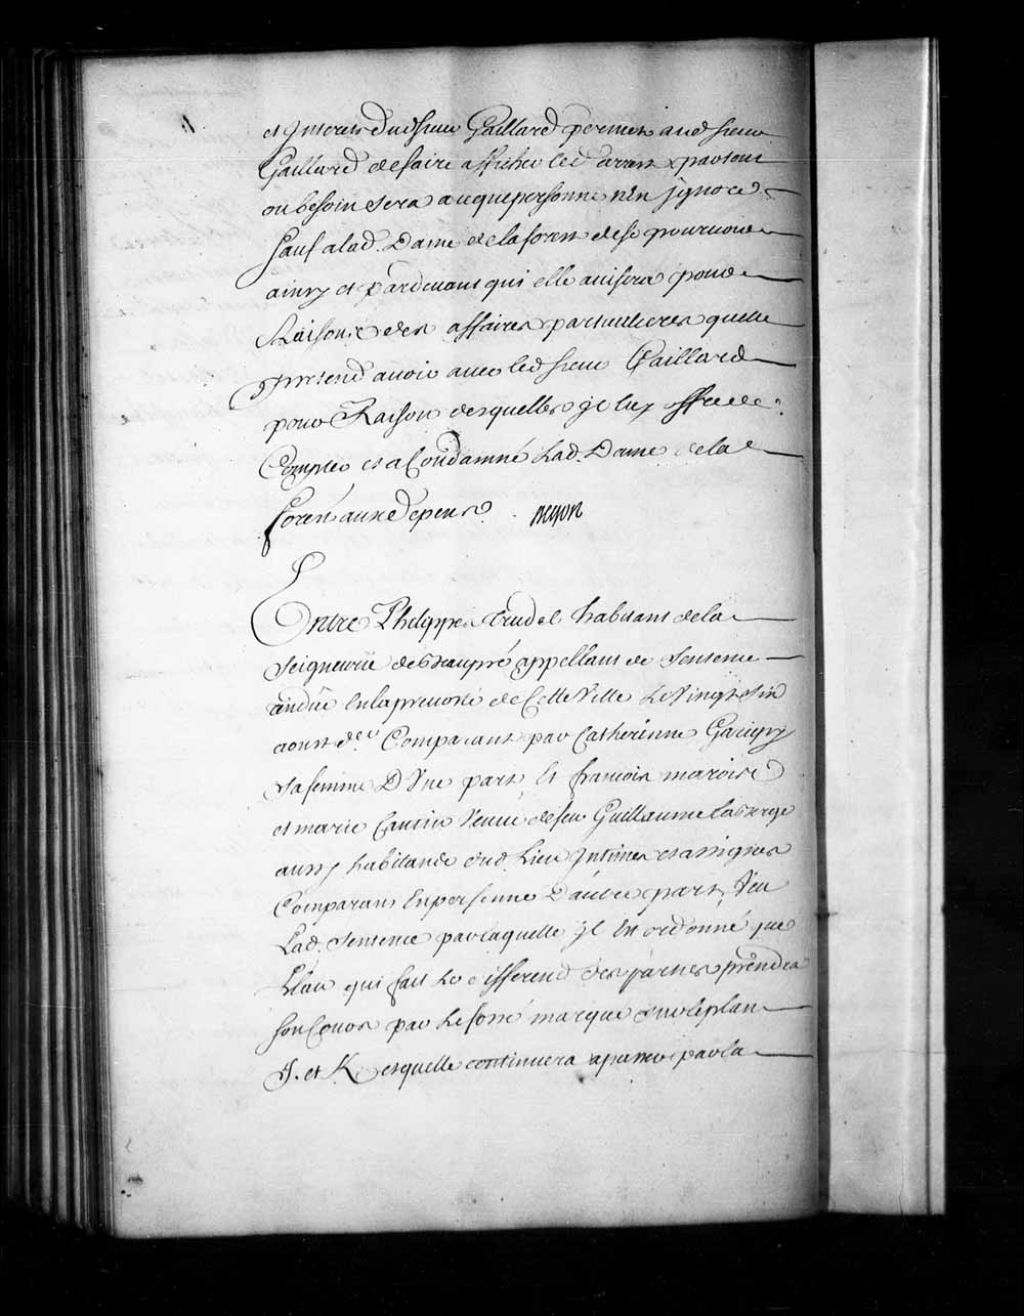 et Interets dud sieur Gaillard permis aud sieur
Gaillard de faire afficher led arrest partout
ou besoin sera a ce que personne n'en jgnore
sauf a lad. Dame de la forest de se pourvoir
ainsy et pardevant qui elle avisera pour
Raison des affaires particulieres quelle
pretend avoir avec led sieur Gaillard
pour Raison desquelles jl luy offre de
Compter et a Condamné Lad. Dame de la
forest aux depens. Begon
Entre Philippes trudel habitant de la
seigneurie de beaupré appellant de sentence
rendue en la prevosté de Cette Ville le vingt six
aoust d.er Comparant par Catherinne Garigny
sa femme D'Une part, Et francois maroist
et marie Cantin veuve de feu Guillaume Laberge
aussy habitants dud. Lieu Intimes et assignes
Comparans En personne D'autre part, Veu
Lad. sentence par laquelle jl Est ordonné que
L'Eau qui fait Le differend des parties prendra
son Cours par Le fossé marqué sur le plan
J. et K. et quelle continuera a passer par la